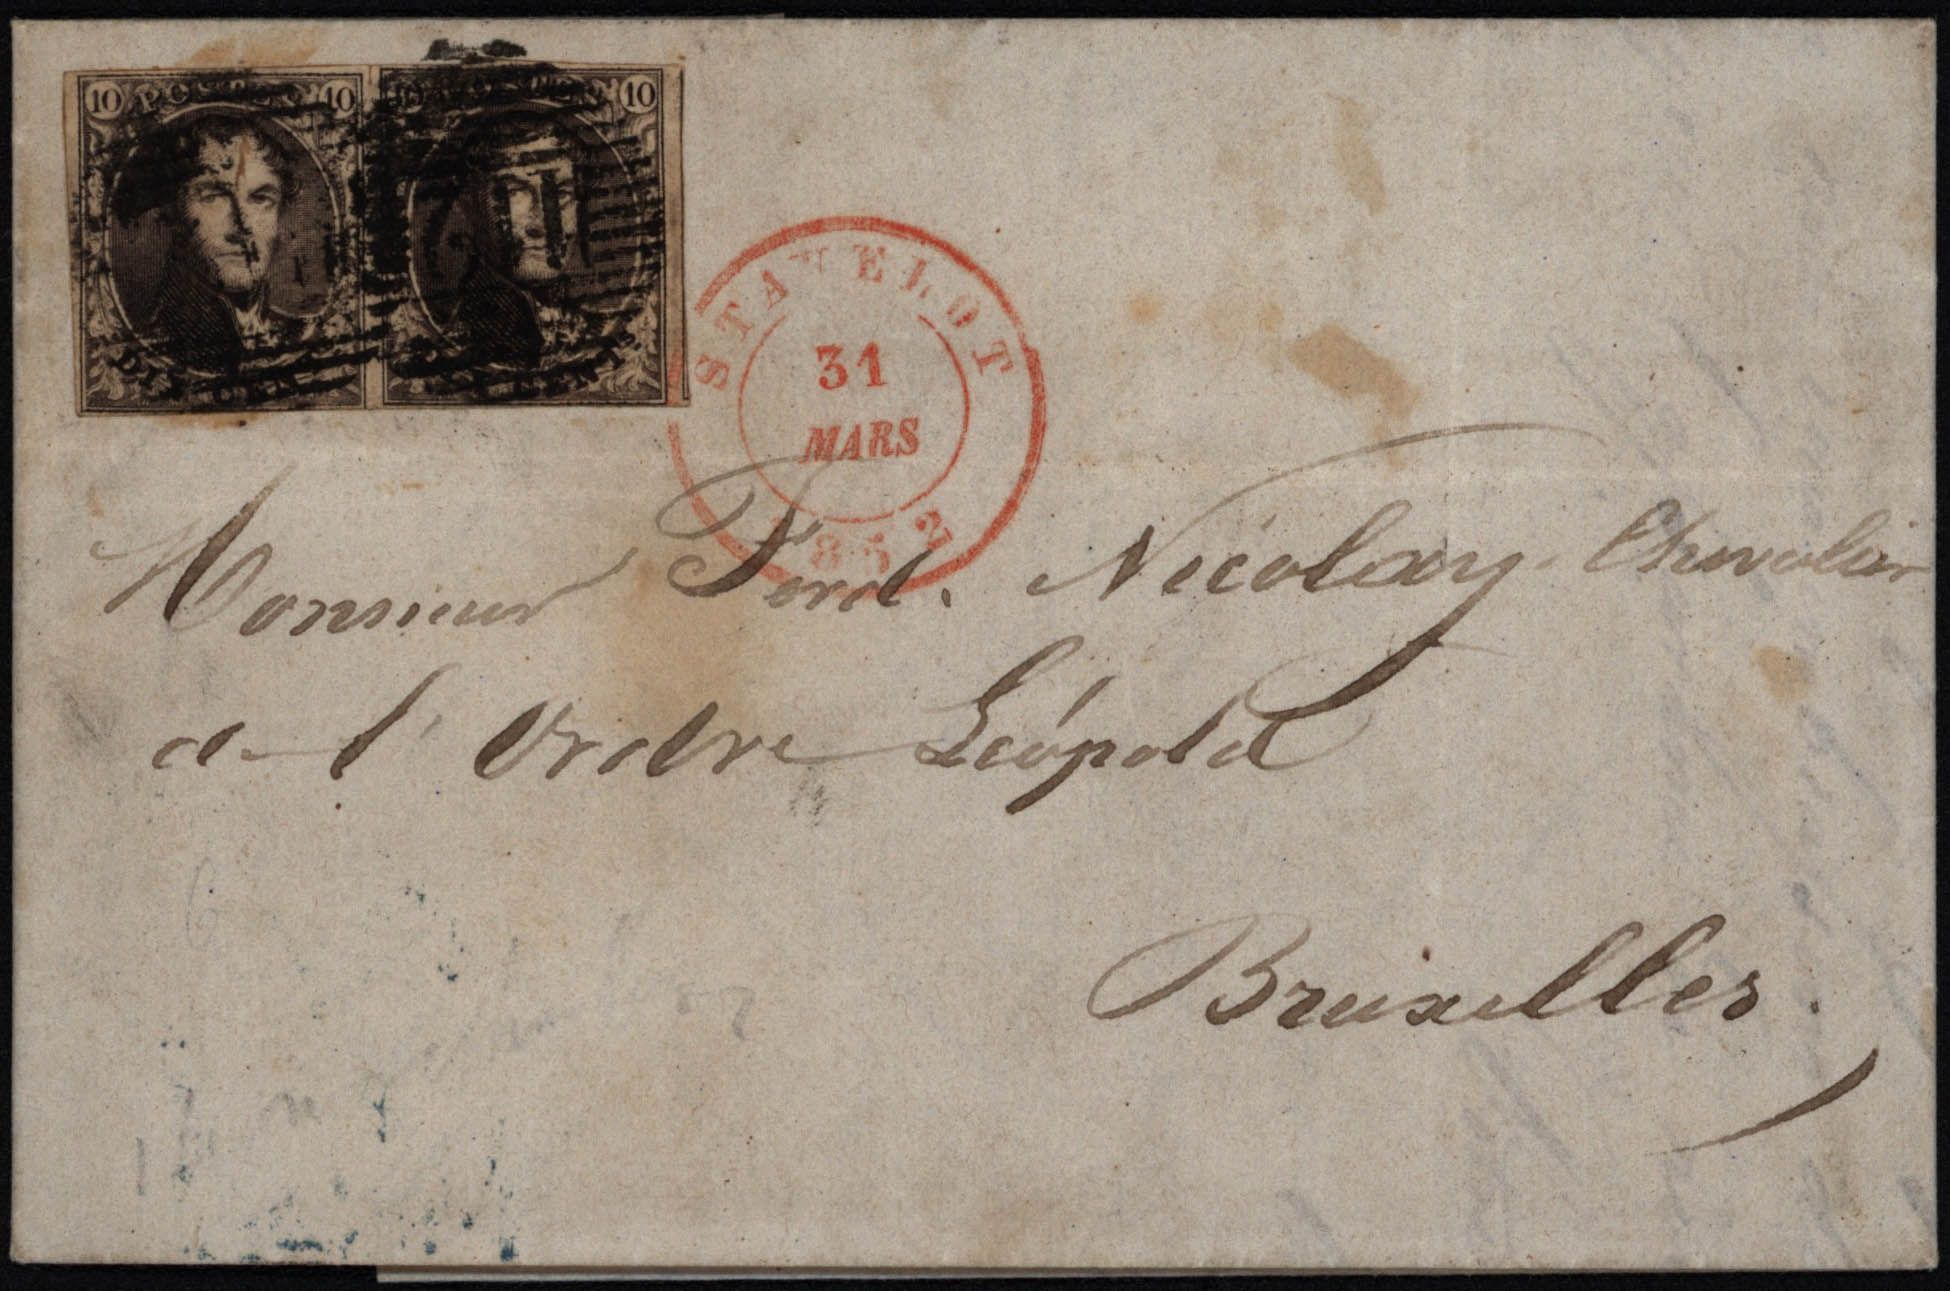 10 POSTES 10
10
DIX CENT
STAVELOT
31
MARS
1852
Monsieur Ferd. Nicolay Chevalier
de l'Ordre Léopold
Bruxelles.